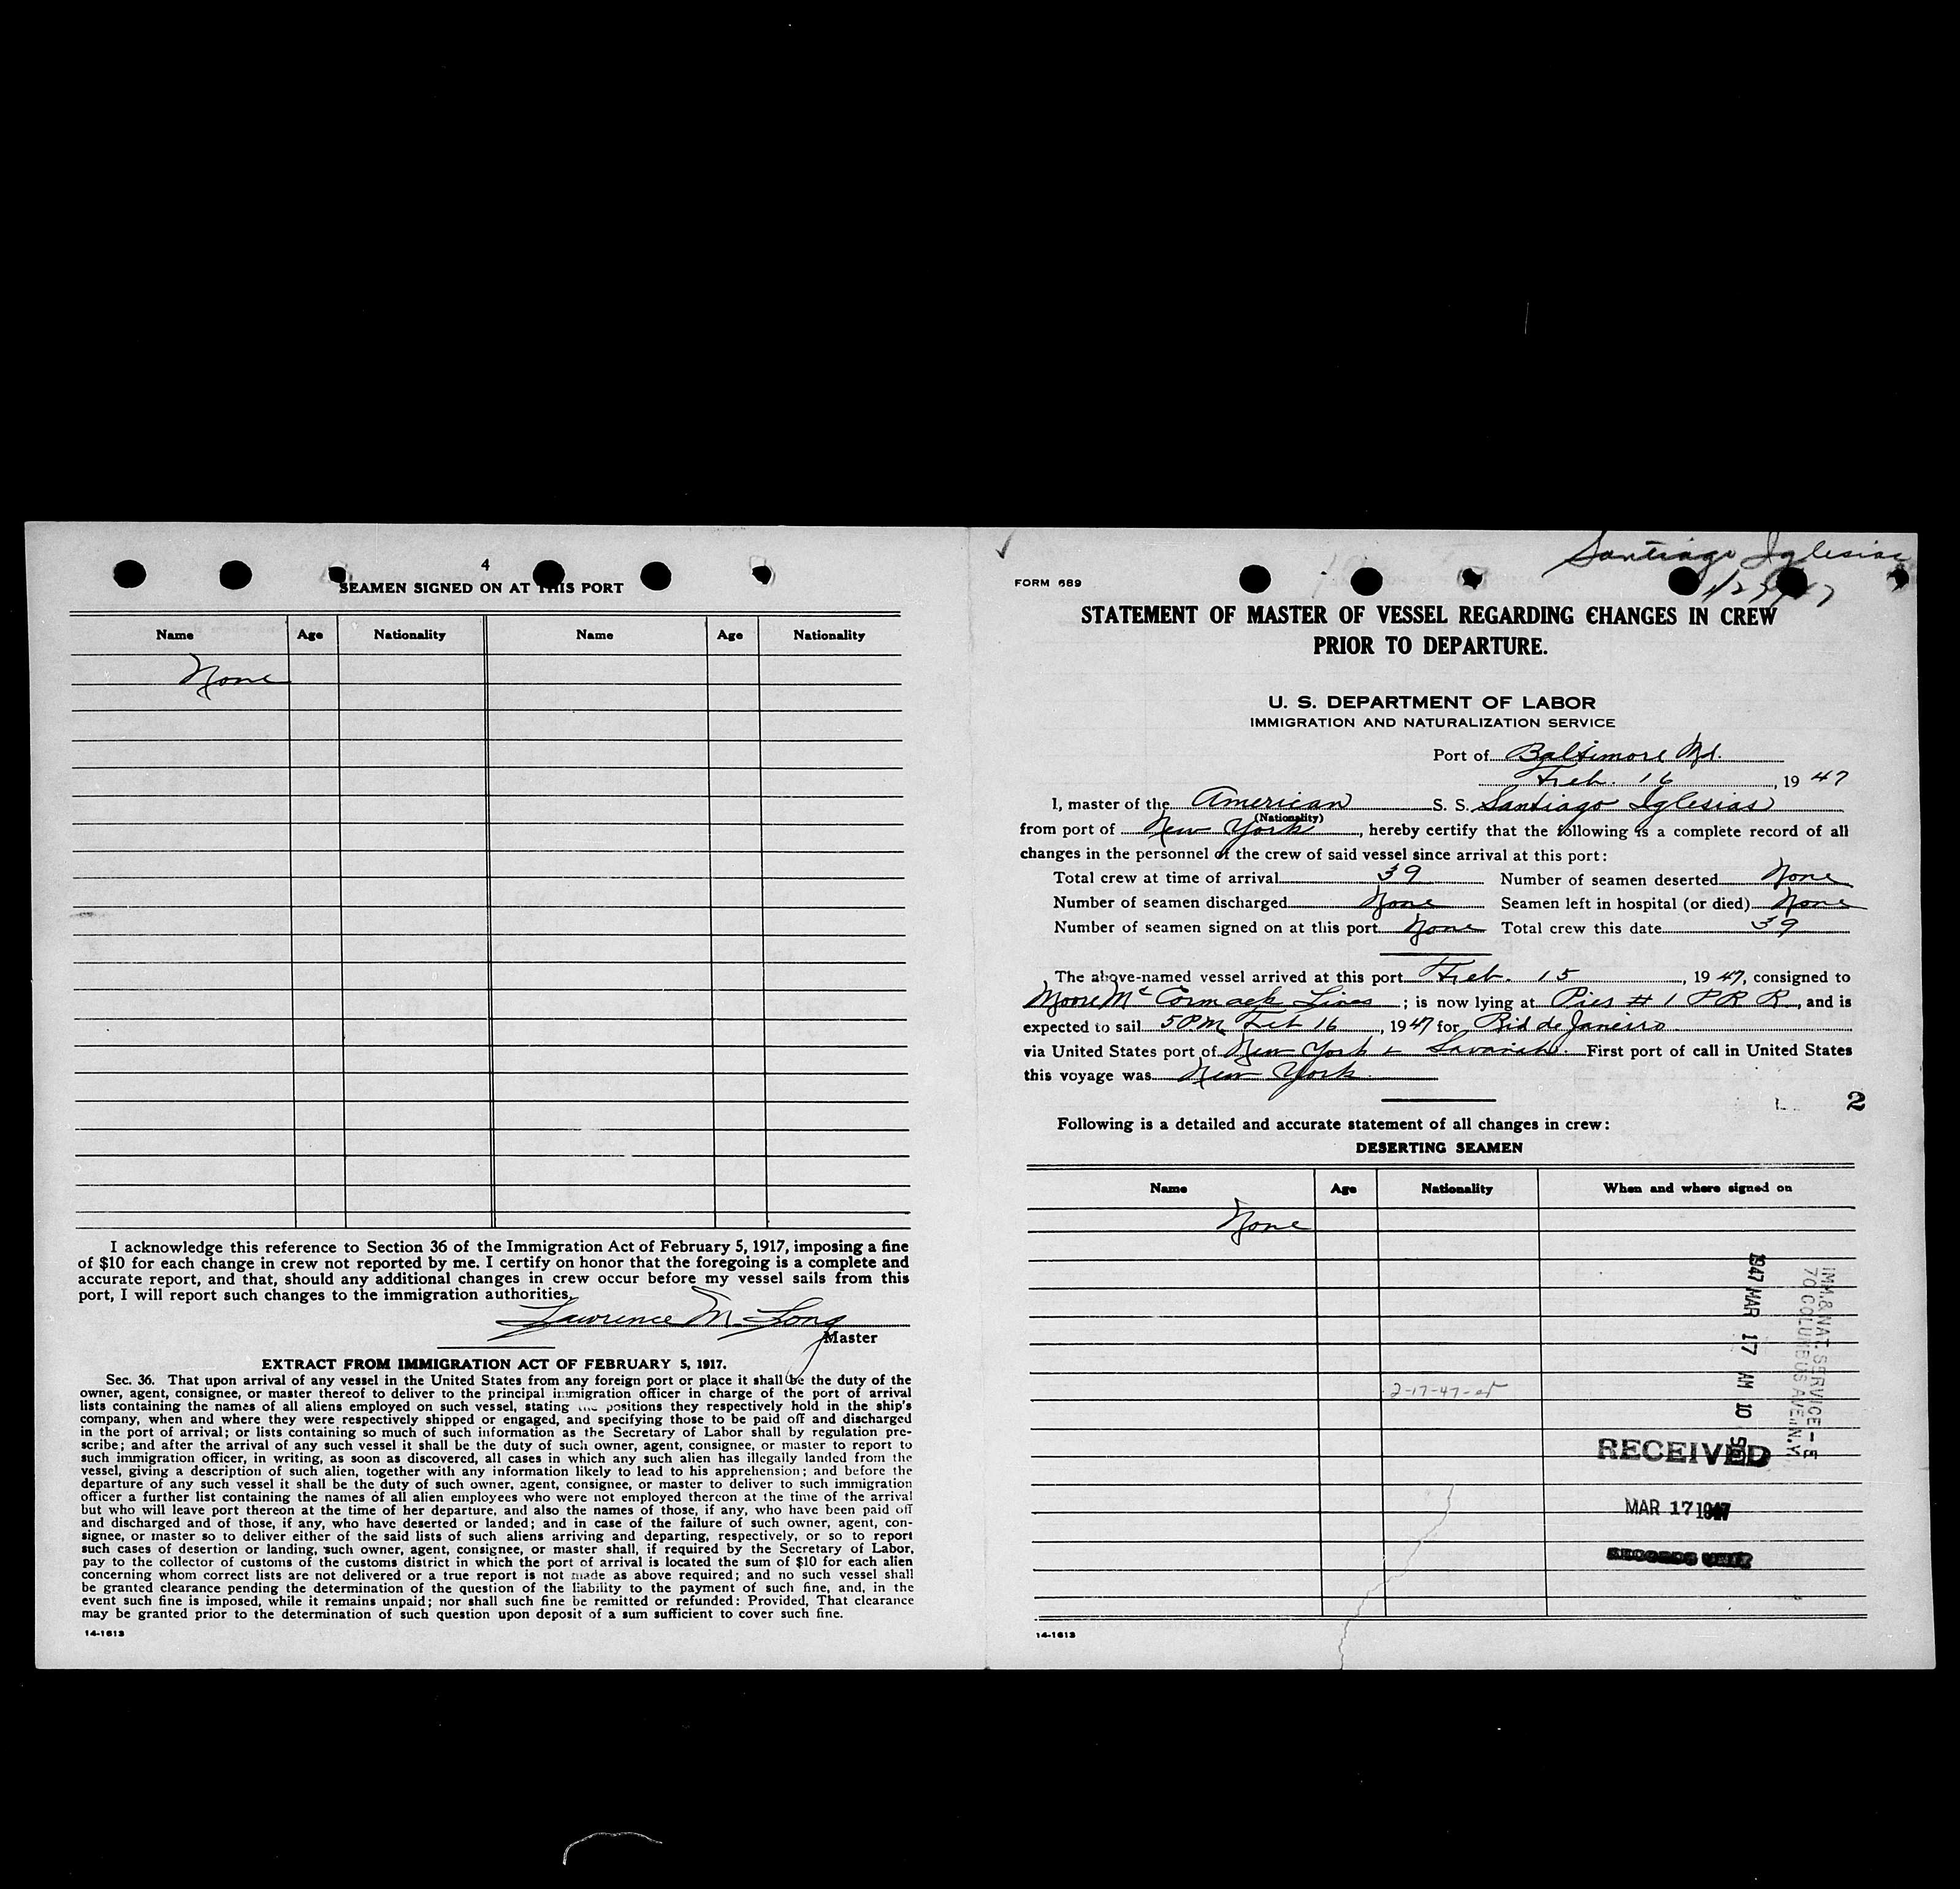 4
SEAMEN SIGNED ON AT THIS PORT
Name Age Nationality Name Age Nationality
None
I acknowledge this reference to Section 36 of the Immigration Act of February 5, 1917, imposing a fine
of $10 for each change in crew not reported by me. I certify on honor that the foregoing is a complete and
accurate report, and that, should any additional changes in crew occur before my vessel sails from this
port, I will report such changes to the immigration authorities.
Lawrence M. Long
Master
EXTRACT FROM IMMIGRATION ACT OF FEBRUARY 5, 1917.
Sec. 36. That upon arrival of any vessel in the United States from any foreign port or place it shall be the duty of the
owner, agent, consignee, or master thereof to deliver to the principal immigration officer in charge of the port of arrival
lists containing the names of all aliens employed on such vessel, stating the positions they respectively hold in the ship's
company, when and where they were respectively shipped or engaged, and specifying those to be paid off and discharged
in the port of arrival; or lists containing so much of such information as the Secretary of Labor shall by regulation pre-
scribe; and after the arrival of any such vessel it shall be the duty of such owner, agent, consignee, or master to report to
such immigration officer, in writing, as soon as discovered, all cases in which any such alien has illegally landed from the
vessel, giving a description of such alien, together with any information likely to lead to his apprehension; and before the
departure of any such vessel it shall be the duty of such owner, agent, consignee, or master to deliver to such immigration
officer a further list containing the names of all alien employees who were not employed thereon at the time of the arrival
but who will leave port thereon at the time of her departure, and also the names of those, if any, who have been paid off
and discharged and of those, if any, who have deserted or landed; and in case of the failure of such owner, agent, con-
signee, or master so to deliver either of the said lists of such aliens arriving and departing, respectively, or so to report
such cases of desertion or landing, such owner, agent, consignee, or master shall, if required by the Secretary of Labor,
pay to the collector of customs of the customs district in which the port of arrival is located the sum of $10 for each alien
concerning whom correct lists are not delivered or a true report is not made as above required; and no such vessel shall
be granted clearance pending the determination of the question of the liability to the payment of such fine, and, in the
event such fine is imposed, while it remains unpaid; nor shall such fine be remitted or refunded: Provided, That clearance
may be granted prior to the determination of such question upon deposit of a sum sufficient to cover such fine.
14-1613
Santiago Iglesias
FORM 689
STATEMENT OF MASTER OF VESSEL REGARDING CHANGES IN CREW
PRIOR TO DEPARTURE.
U. S. DEPARTMENT OF LABOR
IMMIGRATION AND NATURALIZATION SERVICE
Port of Baltimore Md.
Feb. 16, 1947
I, master of the American S. S. Santiago Iglesias
(Nationality)
from port of New York, hereby certify that the following is a complete record of all
changes in the personnel of the crew of said vessel since arrival at this port:
Total crew at time of arrival 39 Number of seamen deserted None
Number of seamen discharged None Seamen left in hospital (or died) None
Number of seamen signed on at this port None Total crew this date 39
The above-named vessel arrived at this port Feb. 15, 1947, consigned to
Moore McCormack Lines; is now lying at Pier # 1 P R R, and is
expected to sail 5 PM Feb 16, 1947 for Rio de Janeiro
via United States port of New York & Savanah. First port of call in United States
this voyage was New York.
2
Following is a detailed and accurate statement of all changes in crew:
DESERTING SEAMEN
Name Age Nationality When and where signed on
None
2-17-47
1947 MAR 17 AM 10
IMM. & NAT. SERVICE - E
70 COLUMBUS AVE., N.Y.
RECEIVED
MAR 17 1947
RECORDS UNIT
14-1613